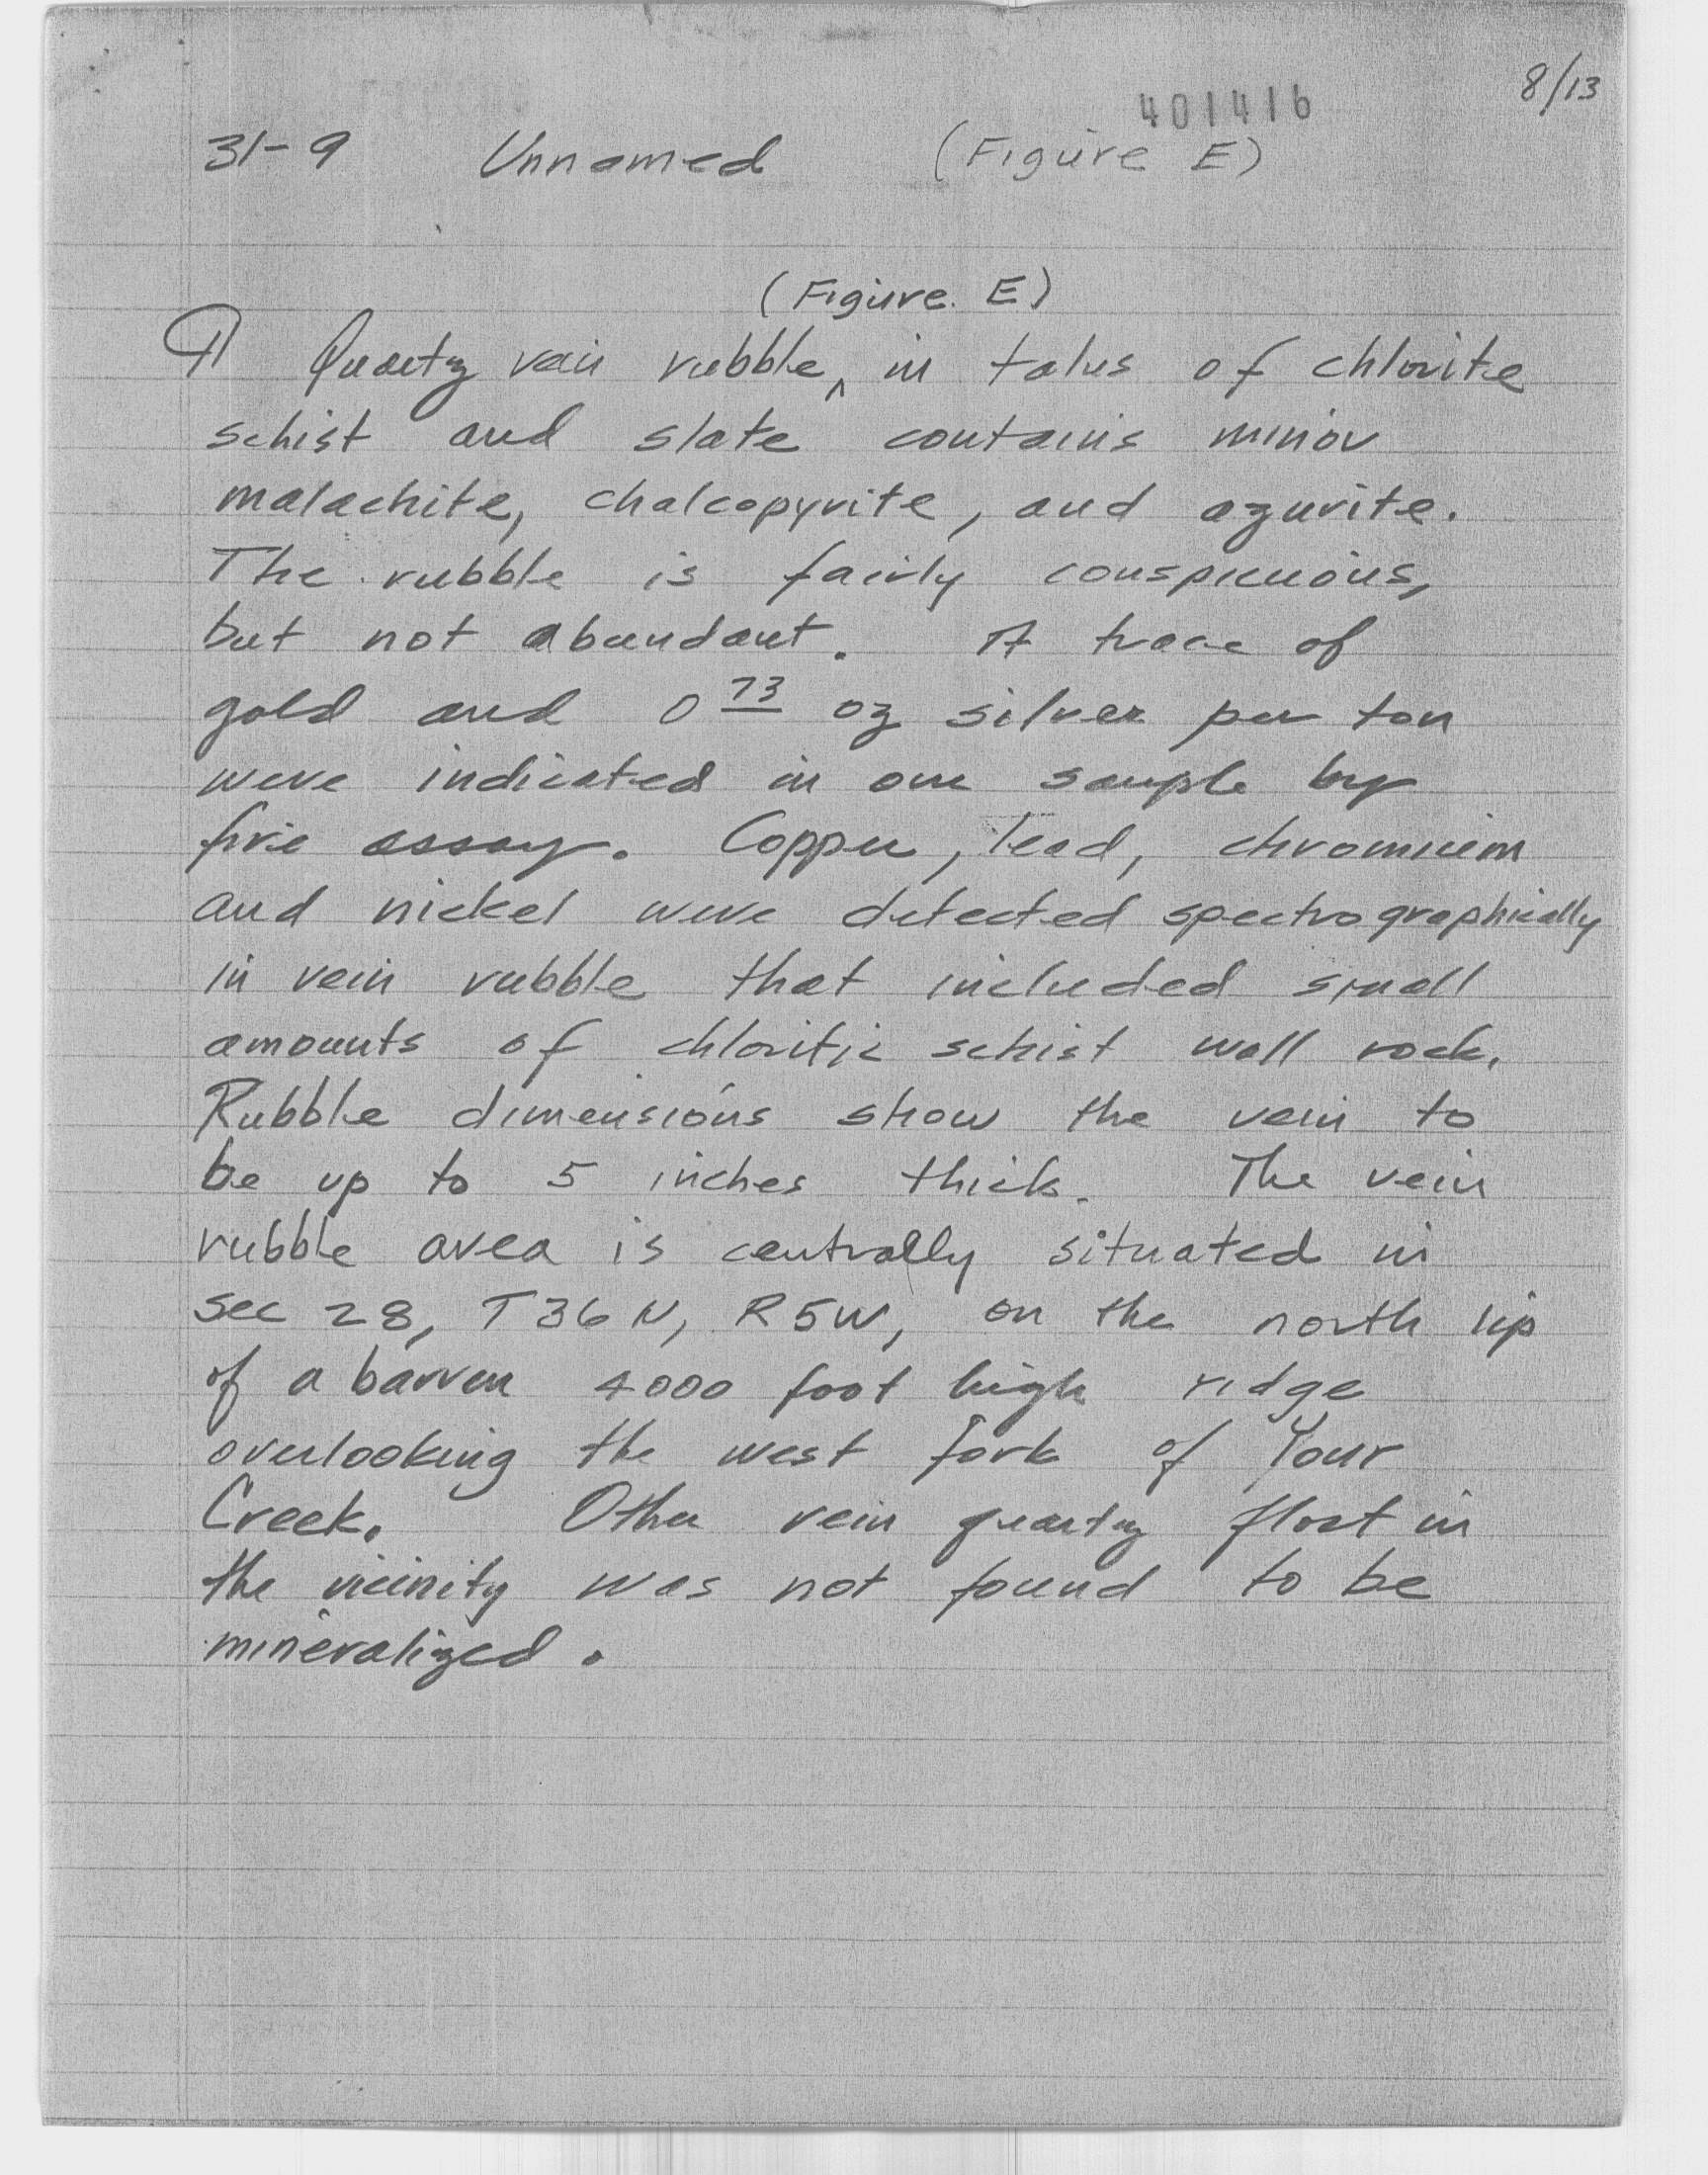 8/13
401416
31-9 Unnamed (Figure E)
(Figure E)
¶ Quartz vein rubble ^ in talus of chlorite
schist and slate contains minor
malachite, chalcopyrite, and azurite.
The rubble is fairly conspicuous,
but not abundant. A trace of
gold and 0 73 oz silver per ton
were indicated in one sample by
fire assay. Copper, lead, chromium
and nickel were detected spectrographically
in vein rubble that included small
amounts of chloritic schist wall rock.
Rubble dimensions show the vein to
be up to 5 inches thick. The vein
rubble area is centrally situated in
sec 28, T36N, R5W, on the north lip
of a barren 4000 foot high ridge
overlooking the west fork of Your
Creek. Other vein quartz float in
the vicinity was not found to be
mineralized.